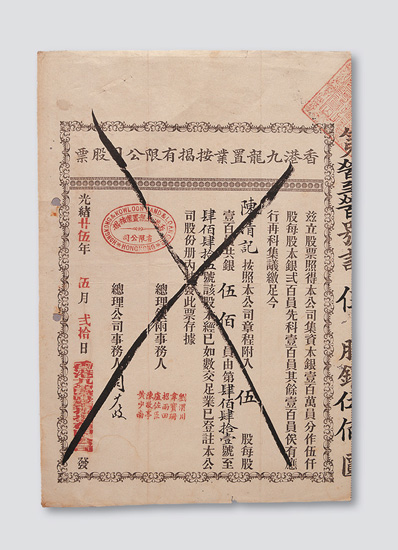 香港九龍置業按揭有限公司股票
茲立股票照得本公司集資本銀壹百萬員分作伍仟
股每股本銀貳百員先科壹百員其餘壹百員俟有應
行再科集議繳足今
陳清記 按照本公司章程附入 伍 股每股
壹百員共銀 伍佰 員由第肆佰肆拾壹號至
肆佰肆拾五號該股本經已如數交足業已登註本公
司股份册內發此票存據
總理
事人
總理公司事務人
劉渭川
韋寶珊
招雨田
盧佐臣
陳曉亭
黃少南
光緒廿五年 五月 貳拾日 發